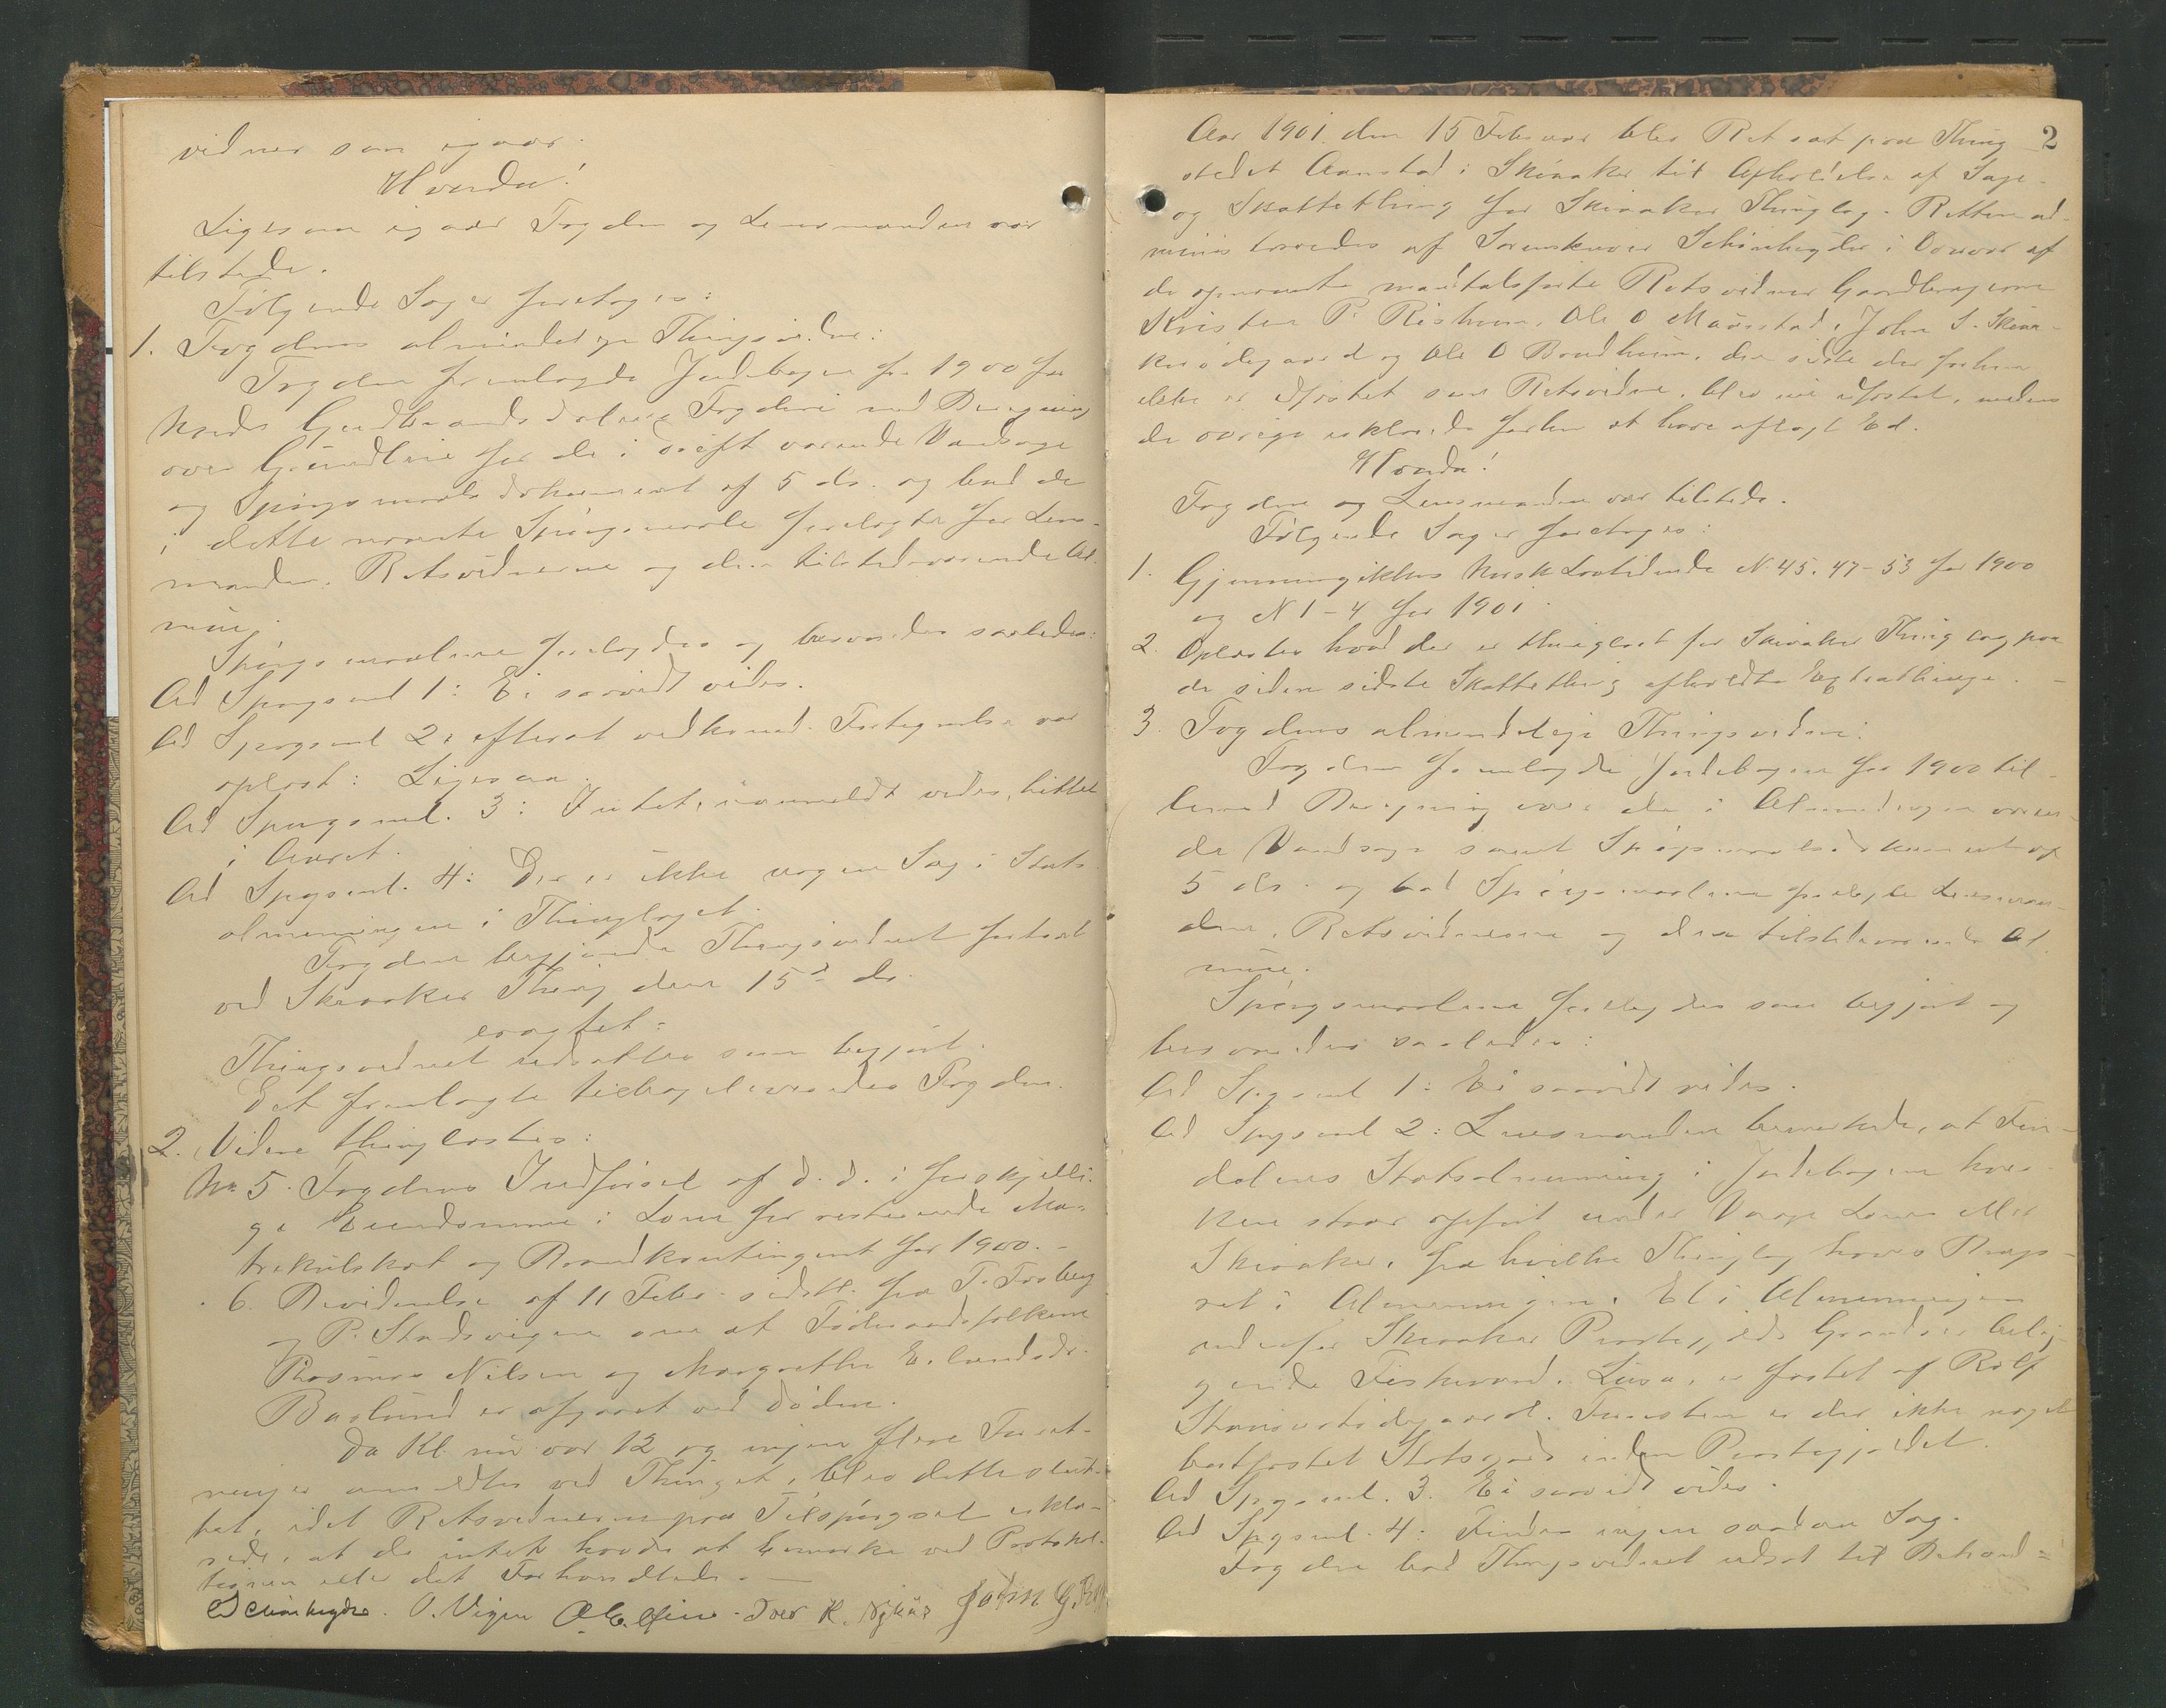 vidner som igaar.
Hvorda!
Ligesom igaar Fogden og Lensmanden var
tilstede.
Følgende Sager foretoges:
1. Fogdens almindelige Thingsvidne:
Fogden fremlagde Jordebogen for 1900 for
Nordre Gudbrandsdalens Fogderi med Beregning
over Grundleie for de i Drift værende Vandsage
og Spørgsmaalsdokument af 5 ds. og bad de
i dette nævnte Spørgsmaale forelagte for Lens-
manden, Retsvidnerne og den tilstedeværende Al-
mue.
Spørgsmaalene forelagdes og besvaredes saaledes:
Ad Spørgsml 1: Ei saavidt vides.
Ad Spørgsml 2, efterat vedkomd. Fortegnelse var
oplæst: Ligesaa.
Ad Spørgsml. 3: Intet, saavidt vides, hittet
i Aaret.
Ad Spgsml. 4: Der er ikke nogen Sag i Stats
almenningen i Thinglaget.
Fogden begjærede Thingsvidnet fortsat
ved Skiaaker Thing den 15de ds.
eragtet:
Thingsvidnet udsættes som begjært.
Det fremlagte tilbageleveredes Fogden.
2. Videre thinglæstes:
No 5. Fogdens Indførsel af d.d. i forskjelli-
ge Eiendomme i Lom for resterende Ma-
trikulskat og Brandkontingent for 1900. -
" 6. Bevidnelse af 11 Febr. sidstl. fra T. Froberg
og P. Stadsvigen om at Føderaadsfolkene
Rasmus Nilsen og Margrethe Erlandsdr.
Baglund er afgaaet ved Døden.
Da Kl. nu var 12 og ingen flere Forret-
ninger anmeldtes ved Thinget, blev dette slut-
tet, idet Retsvidnerne paa Tilspørgsel erklæ-
rede, at de intet havde at bemærke ved Protokol-
tionen eller det Forhandlede. -
Schönheyder. O. Vigen Iver K. Nykus John G.
2
Aar 1901 den 15 Februar blev Ret sat paa Thing
stedet Aanstad i Skiaaker til Afholdelse af Sage-
og Skattething for Skiaaker Thinglag. Retten ad-
ministreredes af Sorenskriver Schönheyder i Overvær af
de opnævnte mandtalsførte Retsvidner Gaardbrugerne
Kristen P. Rishum, Ole O Maurstad, John S. Skiaa-
ker ødegaard og Ole O Brudheim, den sidste der forhen
ikke er edfæstet som Retsvidne, blev nu edfæstet, medens
de øvrige erklærede forhen at have aflagt Ed.
Hvorda!
Fogden og Lensmanden var tilstede.
Følgende Sager foretoges:
1. Gjennemgikkes Norsk Lovtidende N 45. 47-53 for 1900
og N 1-4 for 1901.
2. Oplæstes hvad der er thinglæst for Skiaaker Thinglag paa
de siden sidste Skattething afholdte Extrathinge. -
3. Fogdens almindelige Thingsvidne:
Fogden fremlagde Jordebogen for 1900 til-
ligemed Beregning over de i Almenningen væren-
de Vandsage samt Spørgsmaalsdokument af
5 ds. og bad Spørgsmaalene forelagte Lensman-
den, Retsvidnerne og den tilstedeværende Al-
mue.
Spørgsmaalene forelagdes som begjært og
besvaredes saaledes:
Ad Spgsml 1: Ei saavidt vides.
Ad Spgsml 2: Lensmanden bemærkede, at Fin-
dalens Statsalmenning i Jordebogen hver-
ken staar opført under Vaage Lom eller
Skiaaker, fra hvilke Thinglag haves Brugs-
ret i Almenningen. Et i Almenningen
udenfor Skiaaker Præstegjelds Grændser belig-
gende Fiskevand, Liusa, er fæstet af Rolf
Skamsarødegaard. Forresten er der ikke noget
bortfæstet Statsgods inden Præstegjeldet.
Ad Spgsml. 3. Ei saavidt vides.
Ad Spgsml. 4. Findes ingen saadan Sag.
Fogden bad Thingsvidnet udsat til Behand=